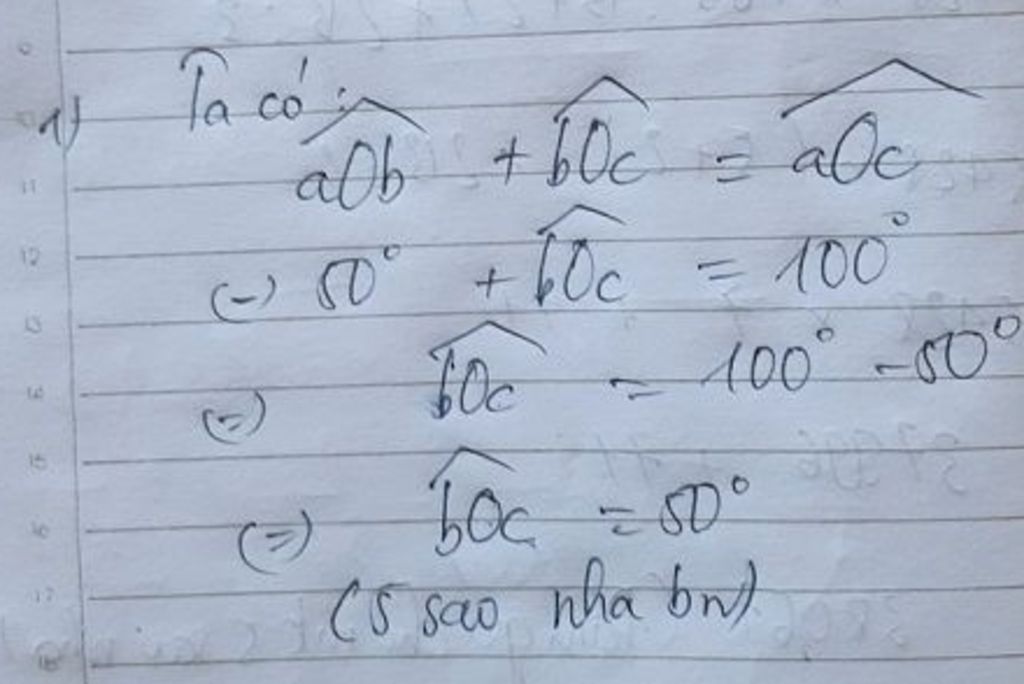 1) Ta có:
aOb + bOc = aOc
(=) 50° + bOc = 100°
(=) bOc = 100° - 50°
(=) bOc = 50°
(5 sao nha bn)